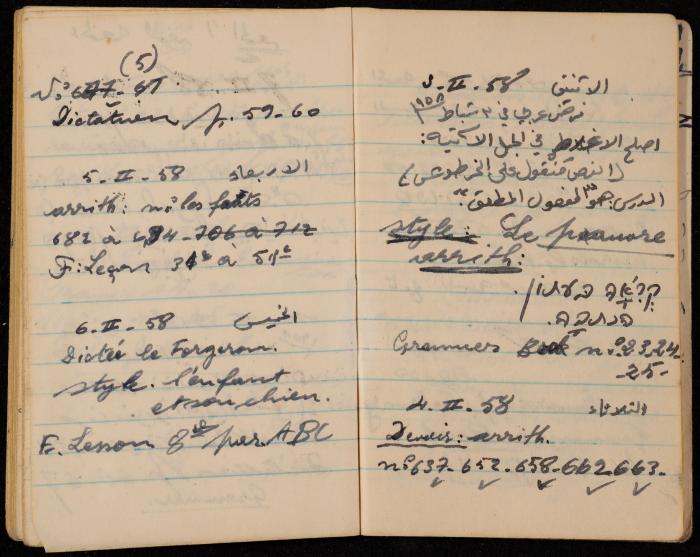 (5)
Dictation p. 59-60
5-II-58 الاربعاء
arrith: nos les faits
682 à 694-706 à 712
F: Leçon à
6-II-58 الخميس
Dictée le Forgeron.
style. l'enfant
et son chien.
E. Lesson 8 par ABC
3-II-58 الاثنين
فرض عربي في ٣ شباط ١٩٥٨
اصلح الاغلاط في الجمل الآتية:
(النص منقول على الخرطوش)
الدرس: هو "المفعول المطلق"
style: Le pauvre
arrith:
קריאה בעתון.
הכתבה.
Grammers Book no: 23.24.
25-
4-II-58 الثلاثاء
Devoir: arrith.
no 637-652-658-662-663-